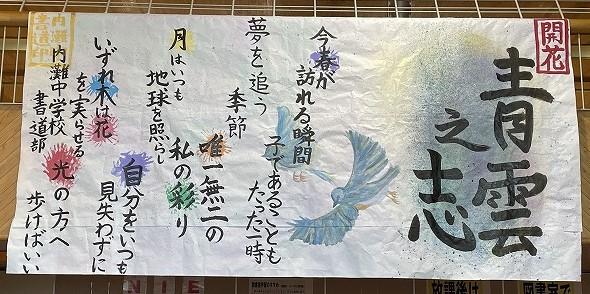 開花
青雲
之志
今春が
訪れる瞬間
子であることも
たった一時
夢を追う
季節
唯一無二の
私の彩り
月はいつも
地球を照らし
自分をいつも
見失わずに
いずれ木は花
を実らせる
光の方へ
歩けばいい
内灘中学校
書道部
内灘
書道印
NIE
放課後は
図書室で